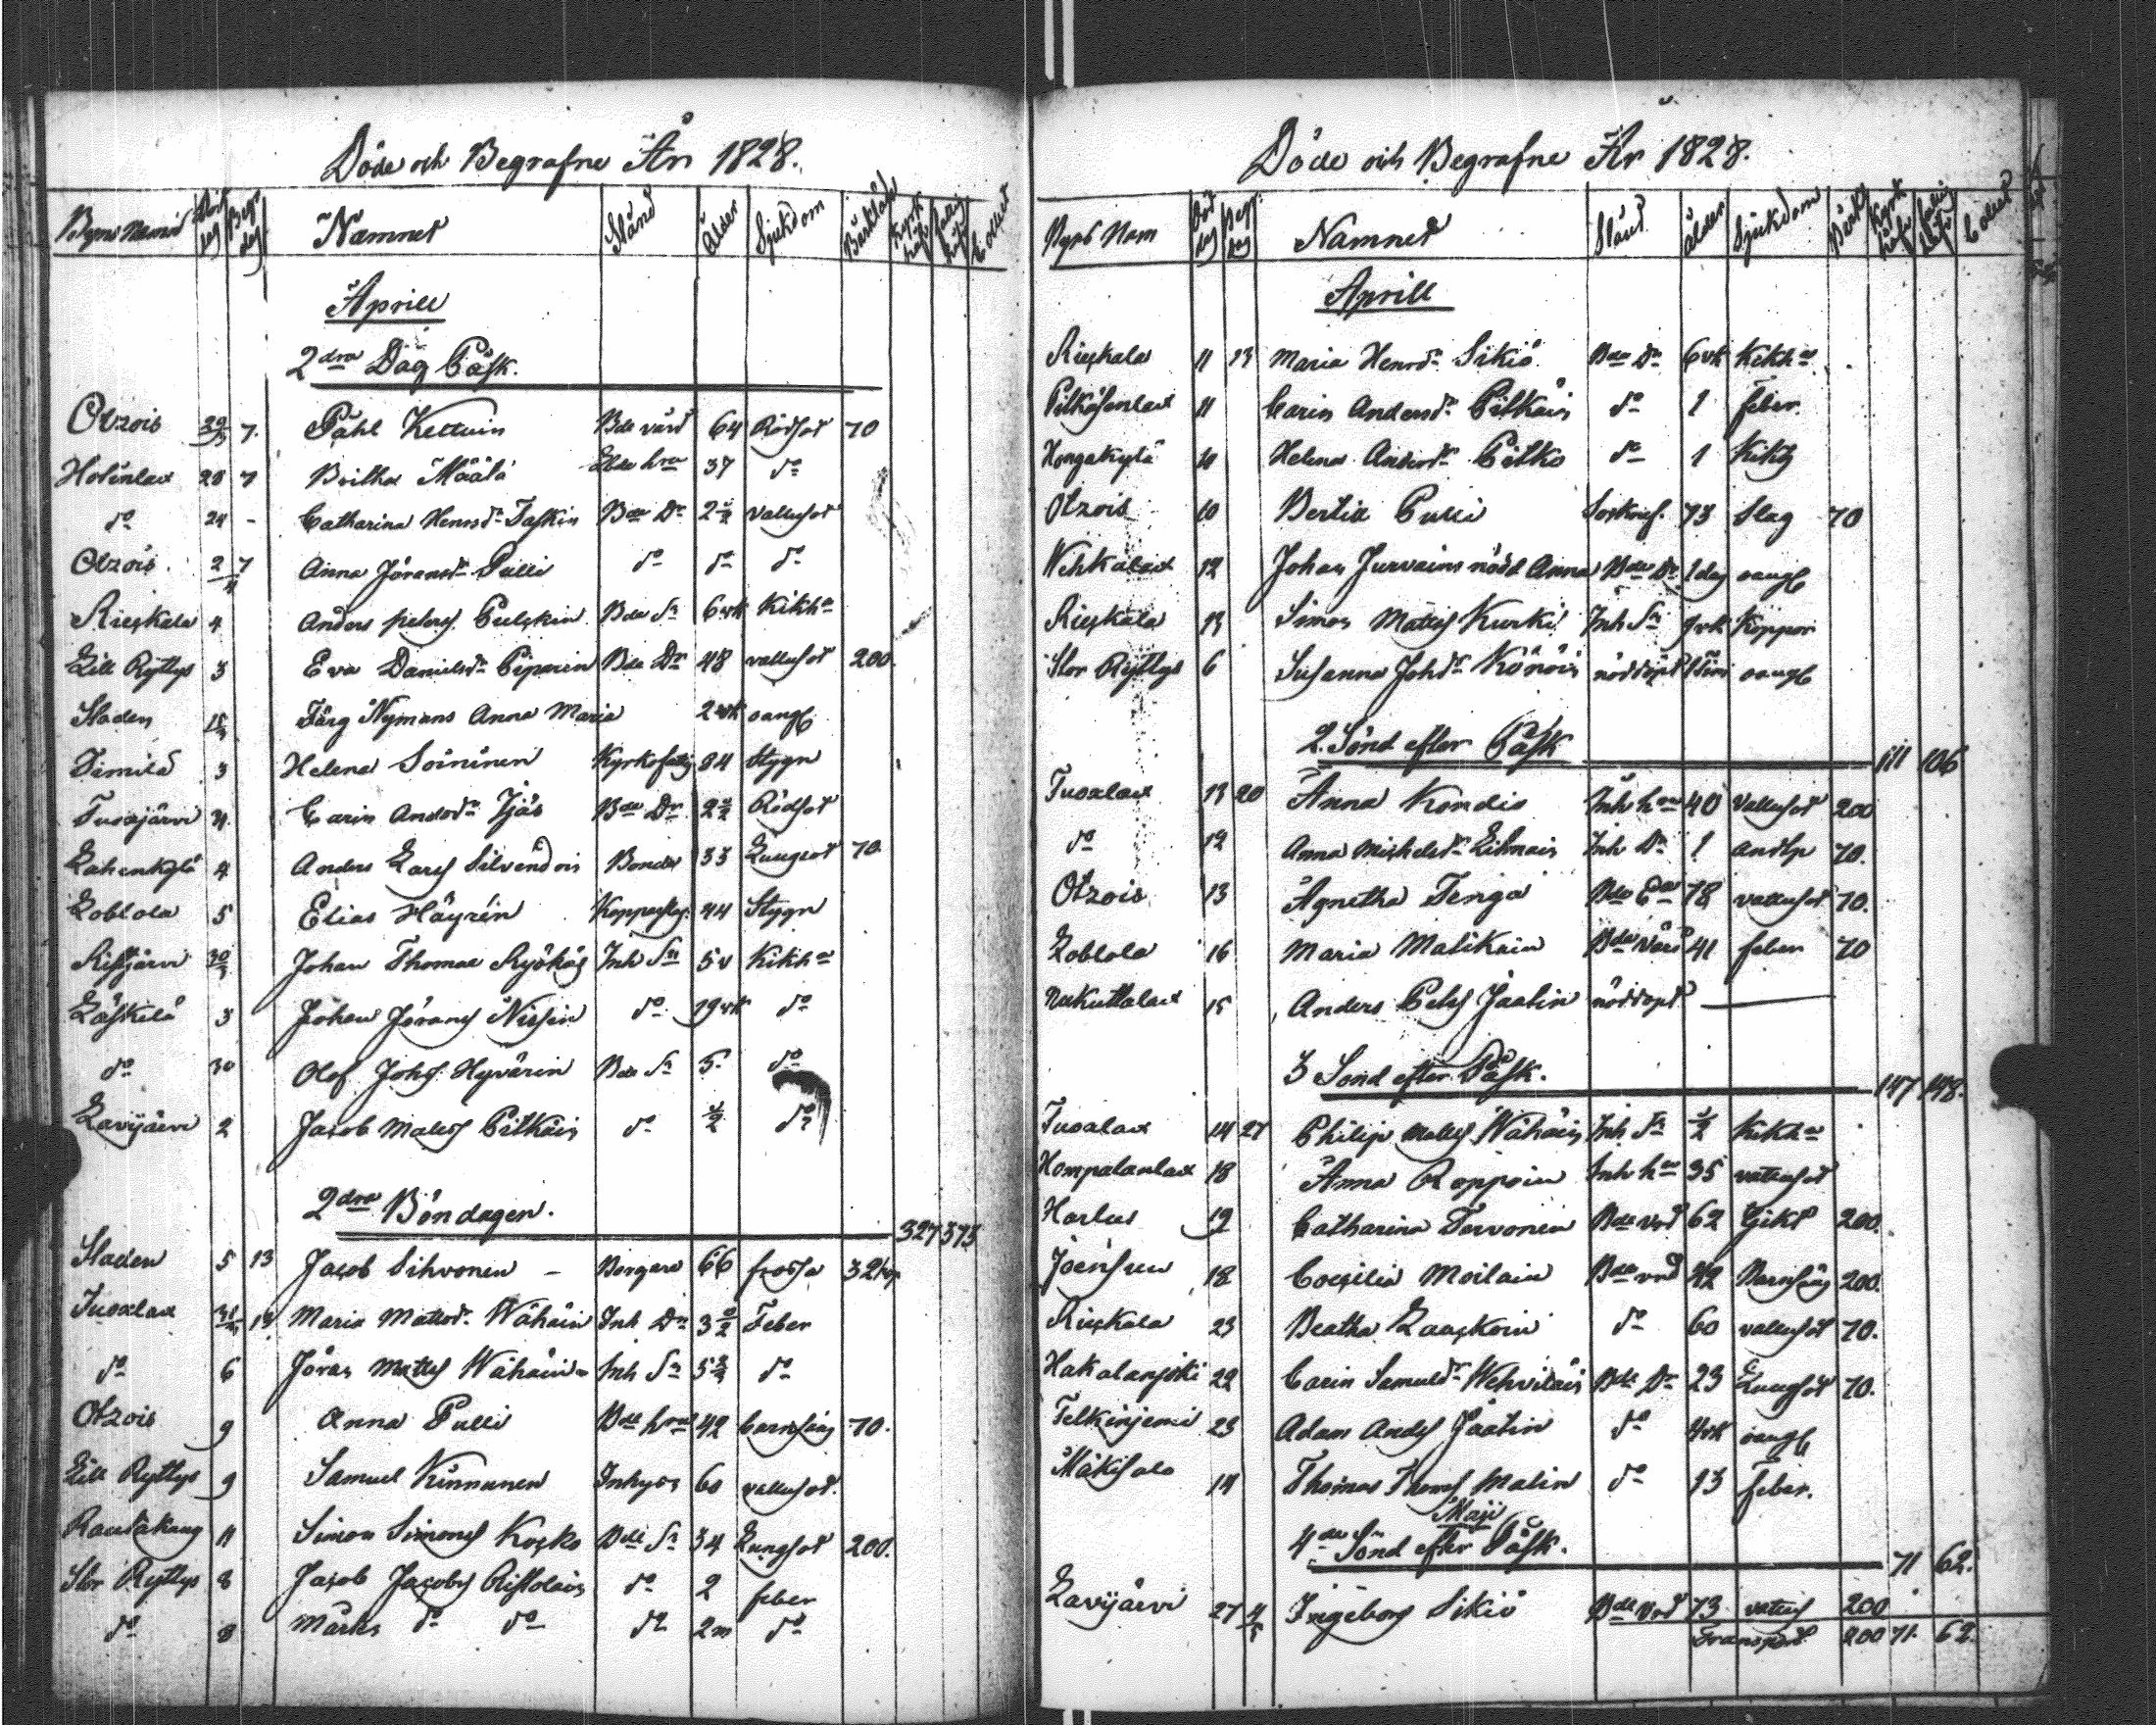 Döde och Begrafne År 1828.
Byns Namn Död dag Begr dag Namnet Stånd Ålder Sjukdom Bårkläde Kyrk håf Fattig håf Collect
Aprill
2dra Dag Påsk.
Otzois 29/3 7. Påhl Kettuin Bde värd 64 Rödsot 70
Hotinlax 28 7 Britha Määtä hru 37 do
do 24 - Catharina Henrsdr Taskin Bde Dr 2 1/2 vattusot
Otzois. 2/4 7 Anna Jöransdr Pulli do do do
Rieskala 4 Anders peters Pulskin Bde Sn 6 vk Kikho
Lill Ryttys 3 Eva Danielsdr Piparin Bde Dr 48 vattusot 200.
Staden 15/3 Färg Nymans Anna Maria 2 vk oangf
Simila 3 Helena Soininen Kyrkofattig 84 Stygn
Tuoxjärvi 4. Carin Andsdr Tjäs Bde Dr 2 1/2 Rödsot
Lahenkylä 4 Anders Lars Silvendoin Bonde 33 Lungsot 70.
Loblola 5 Elias Häyrén 44 Stygn
Ristjärvi 30/3 Johan Thomae Ryökäs Inh Sn 5 v Kikho
Läskelä 3 Johan Jörans Nissin do 19 vk do
do 30 Olof Johs Hyvärin Bde Sn 5. do
Lavijärvi 2 Jacob Matts Pitkäin do 1/2 do
2dra Böndagen. 327 373
Staden 5 13 Jacob Sihvonen - Borgare 66 frossa 32 kop
Tuoxlax 31/3 13 Maria Mattsdr Wähäin Inh Dr 3 1/2 Feber
do 6 Jöran Matts Wähäin Inh Sn 5 1/2 do
Otzois 9 Anna Pulli Bde hru 42 barnsäng 70.
Lill Ryttys 9 Samuel Kinnunen Inhyses 60 vattusot.
Rautakang 11 Simon Simons Kosko Bde Sn 34 Lungsot 200.
Stor Ryttys 8 Jacob Jacobs Ristolain do 2 feber
do 8 Märks do do do 2 m do
Döde och Begrafne År 1828.
Byns Nam Död dag Begr: dag Namnet Stånd Ålder Sjukdom Bårk Kyrk håf Fattig håf Collect
Aprill
Rieskala 11 13 Maria Henrsdr Sikiö Bde Dr 6 vk Kikho
Pitkäsenlax 11 Carin Andersdr Pitkäin do 1 feber.
Hongakylä 10 Helena Andersdr Pitko do 1 Kikh
Otzois 10 Bertil Pulli 73 Slag 70
Wehkalax 12 Johan Jurvains nödd Anna Bde Dr 1 dag oangf
Rieskala 13 Simon Matts Kurki Inh Sn 9 vk Koppor
Stor Ryttys 6 Susanna Johsdr Könöin nöddöpt oangf
2. Sönd efter Påsk 111 106
Tuoxlax 13 20 Anna Kondio Inh hu 40 Vattusot 200
do 12 Anna Michelsdr Litmain Inh Dr 1 andtp 70.
Otzois 13 Agnetha Tenga Bde 78 vattusot 70.
Loblola 16 Maria Matikain Bde värd 41 feber 70
Nukuttalax 15 Anders Pets Jaatin nöddöpt
3 Sönd efter Påsk. 147 148.
Tuoxlax 14 27 Philip Matts Wähäin Inh Sn 1/2 Kikho
Kompalanlax 18 Anna Roppoin Inh hu 35 vattusot
Harlu 19 Catharina Tervonen Bde vrd 62 Gikt 200.
Joensuu 18 Coecilia Moilain Bde vrd 42 Barnsäng 200.
Rieskala 23 Beatha Laaskoin do 60 vattusot 70.
Hakalanjoki 22 Carin Samuelsdr Wehviläin Bde Dr 23 Lungsot 70.
Telkinjemi 23 Adam Anders Jaatin do 4 vk oangf
Mäkisalo 14 Thomas Thoms Malin do 13 feber.
Maji
4de Sönd efter Påsk. 71 62.
Lavijärvi 27 4/5 Ingeborg Sikiö Bde vrd 73 vattus 200
Transport 200 71. 62